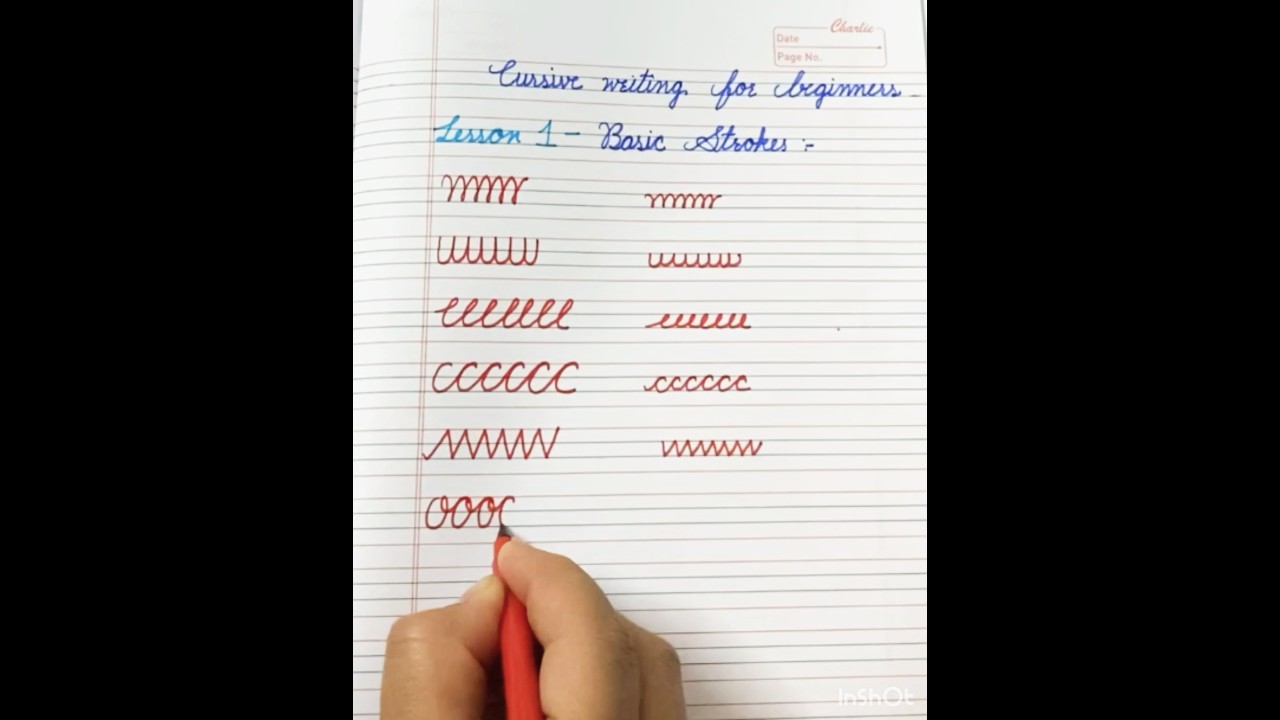 Charlie
Date
Page No.
Cursive writing for beginners
Lesson 1 - Basic Strokes :-
mmm mmm
uuuuu uuuuuu
eeeeeee eeeeee
cccccc cccccc
ooo
InShOt